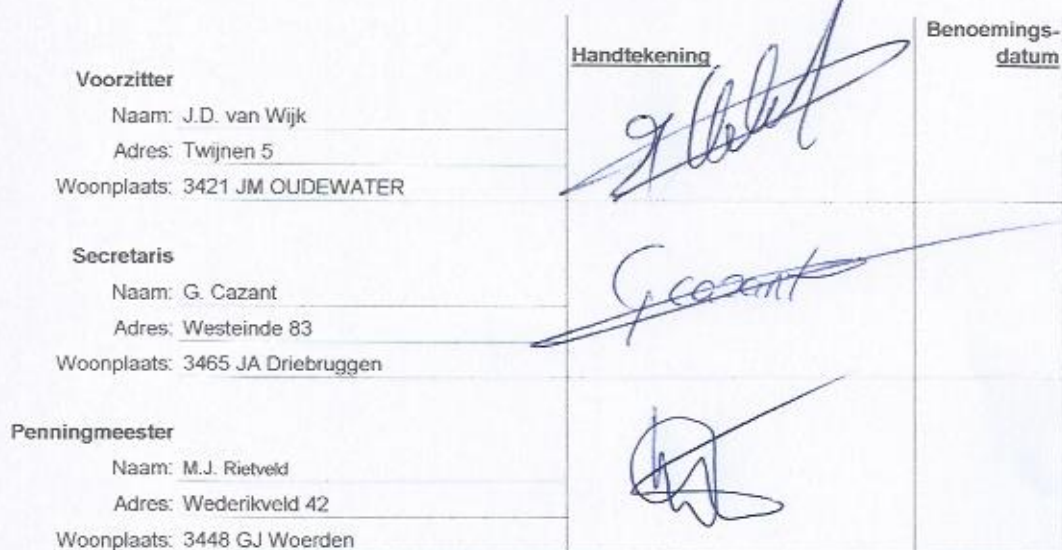 Handtekening
Benoemings-
datum
Voorzitter
Naam: J.D. van Wijk
Adres: Twijnen 5
Woonplaats: 3421 JM OUDEWATER
Secretaris
Naam: G. Cazant
Adres: Westeinde 83
Woonplaats: 3465 JA Driebruggen
G Cazant
Penningmeester
Naam: M.J. Rietveld
Adres: Wederikveld 42
Woonplaats: 3448 GJ Woerden